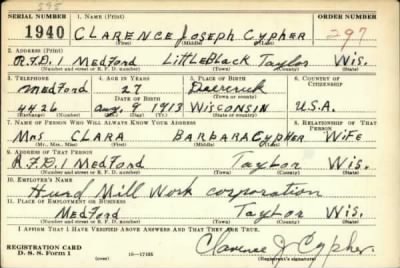 595
SERIAL NUMBER 1. NAME (Print) ORDER NUMBER
1940 CLARENCE Joseph CYPHER 297
(First) (Middle) (Last)
2. ADDRESS (Print)
R.F.D. 1 Medford LittleBlack Taylor Wis.
(Number and street or R. F. D. number) (Town) (County) (State)
3. TELEPHONE 4. AGE IN YEARS 5. PLACE OF BIRTH 6. COUNTRY OF CITIZENSHIP
Medford 27
(Town or county)
DATE OF BIRTH
4426 Aug. 9 1913 Wisconsin U.S.A.
7. NAME OF PERSON WHO WILL ALWAYS KNOW YOUR ADDRESS 8. RELATIONSHIP OF THAT PERSON
Mrs CLARA BARBARA CYPHER WiFe
(Mr., Mrs., Miss) (First) (Middle) (Last)
9. ADDRESS OF THAT PERSON
R.F.D. 1 Medford Taylor Wis.
(Number and street or R. F. D. number) (Town) (County) (State)
10. EMPLOYER'S NAME
Hurd Mill Work corporation
11. PLACE OF EMPLOYMENT OR BUSINESS
Medford Taylor Wis.
(Number and street or R. F. D. number) (Town) (County) (State)
I AFFIRM THAT I HAVE VERIFIED ABOVE ANSWERS AND THAT THEY ARE TRUE.
REGISTRATION CARD
D. S. S. Form 1 (over) 16—17105
Clarence J. Cypher
(Registrant's signature)